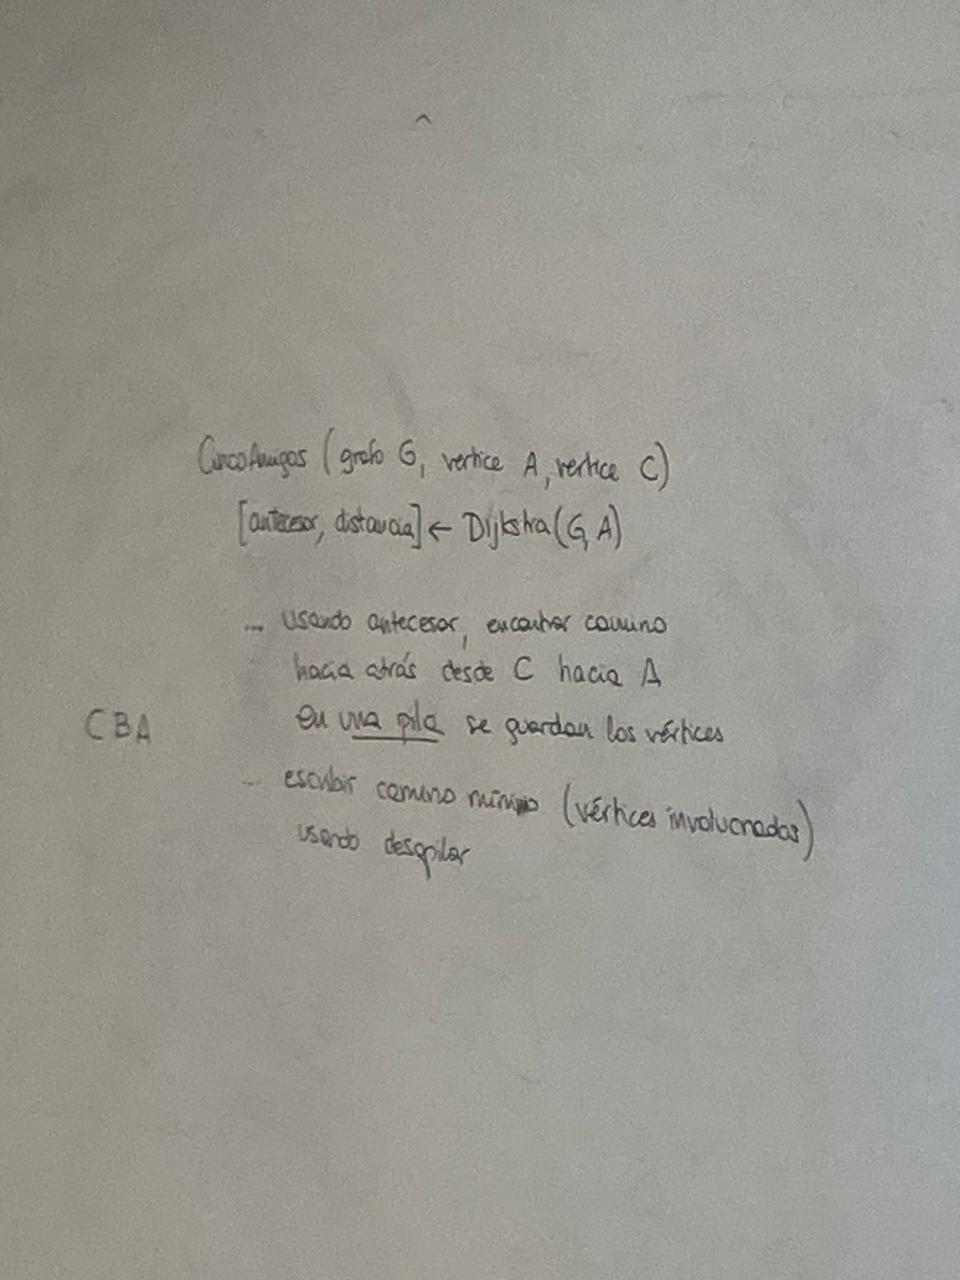 CincoAmigos (grafo G, vertice A, vertice C)
[antecesor, distancia] ← Dijkstra(G, A)
... usando antecesor, encontrar camino
hacia atrás desde C hacia A
CBA en una pila se guardan los vértices
... escribir camino mínimo (vértices involucrados)
usando desapilar